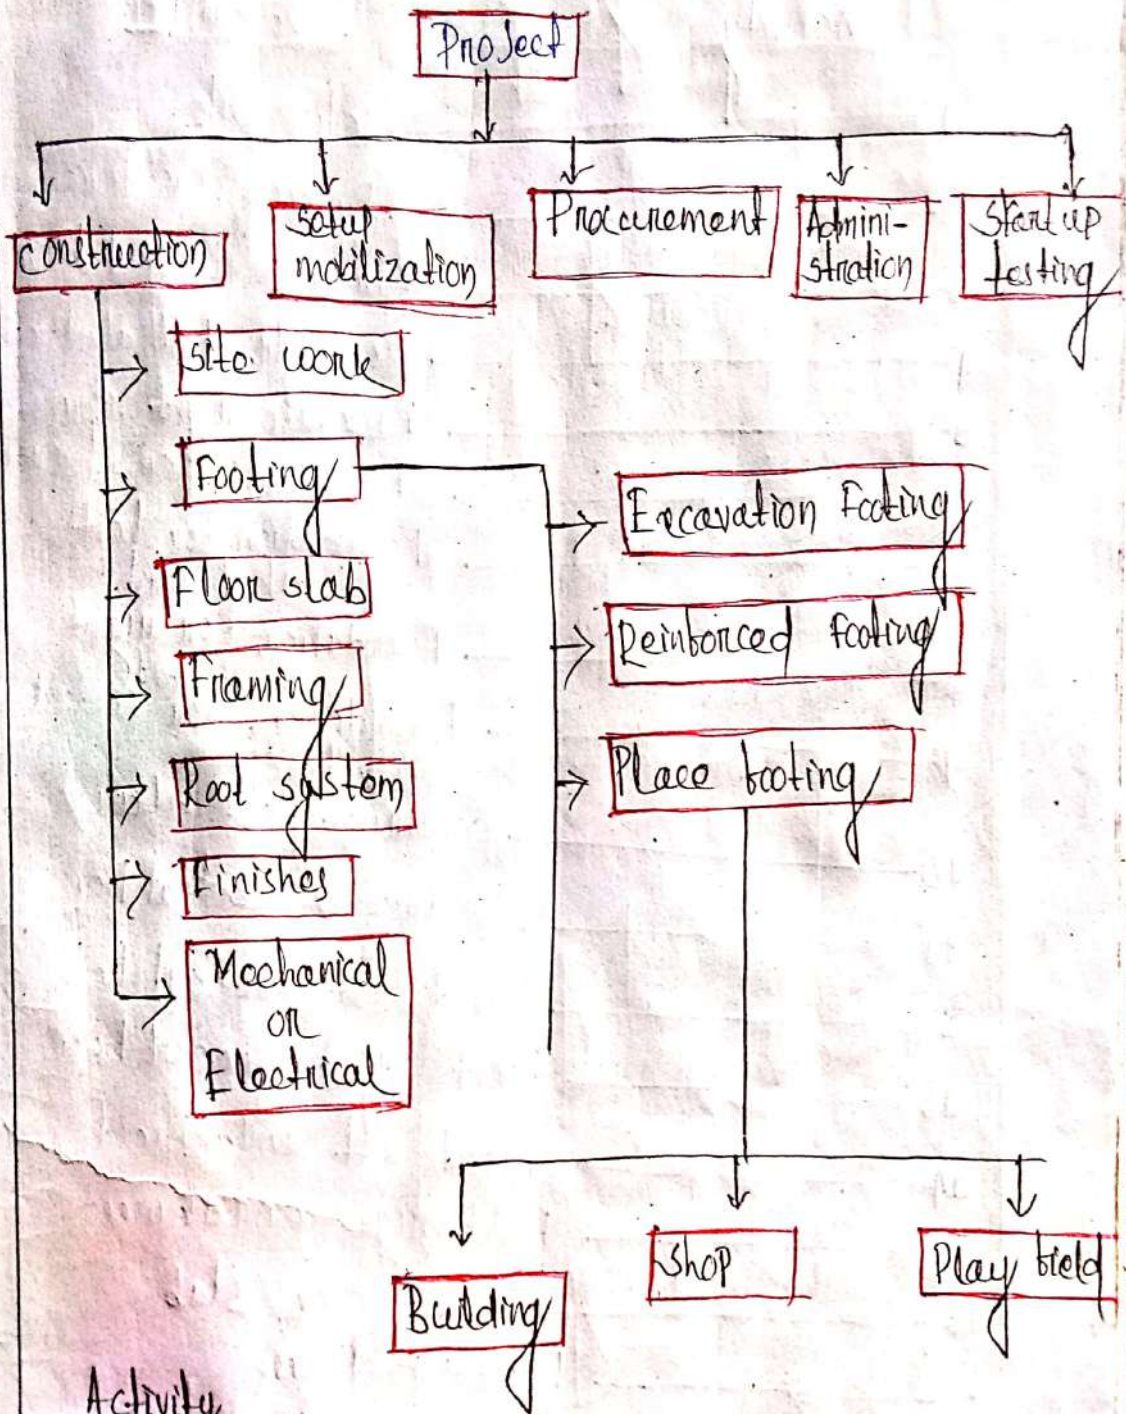 Project
construction
Setup
mobilization
Procurement
Admini-
stration
Start up
testing
Site work
Footing
Floor slab
Framing
Roof system
Finishes
Mechanical
or
Electrical
Excavation Footing
Reinforced footing
Place footing
Building
Shop
Play field
Activity